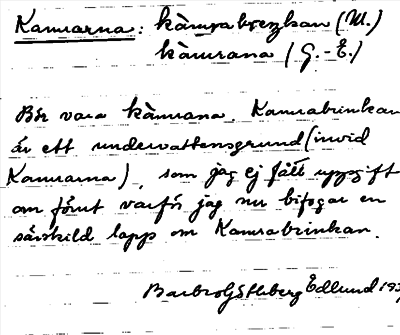 Kamrarna: kàmrabrezkan (M.)
kàmrana (G.-E.)
Bör vara kàmrana. Kamrabrinkan
är ett undervattensgrund (invid
Kamrarna), som jag ej fått uppgift
om förut varför jag nu bifogar en
särskild lapp om Kamrabrinkan.
Edlund